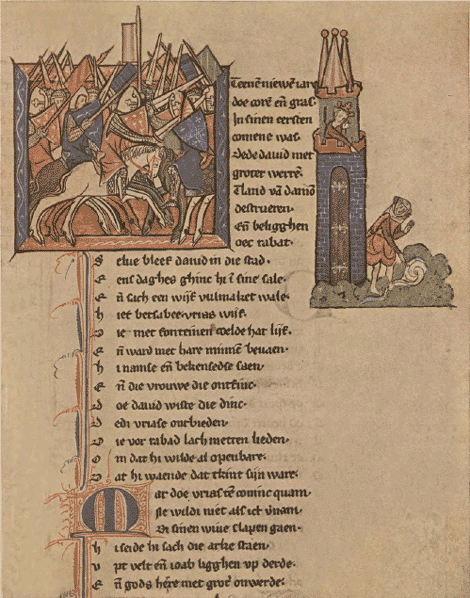 Teenē niewē iare
doe corē eñ gras
In sinen eersten
comene was.
Dede dauid met
groter werre.
Tland vā damō
destrueren.
Eñ beligghen
oec rabat.
S elue bleef dauid in die stad.
E ens daghes ghinc hi ī sine sale.
E ñ sach een wijf vulmaket wale.
H iet betsabee vrias wijf.
D ie met fonteinen coelde haer lijf.
E ñ ward met hare minnē beuaen.
H i namse eñ bekensedse saen.
E ñ die vrouwe die ontfinc.
D oe dauid wiste die dinc.
D edi vriase ontbieden.
D ie vor rabad lach metten lieden.
O m dat hi wilde al openbare.
D at hi waende dat tkint sijn ware.
M ar doe vrias tē coninc quam.
Sie wildi niet als ict vnam.
Bi sinen wiue slapen gaen.
H i seide hi sach die arke staen.
V pt velt eñ ioab ligghen vp derde.
E ñ gods hēre met grotē onwerde.